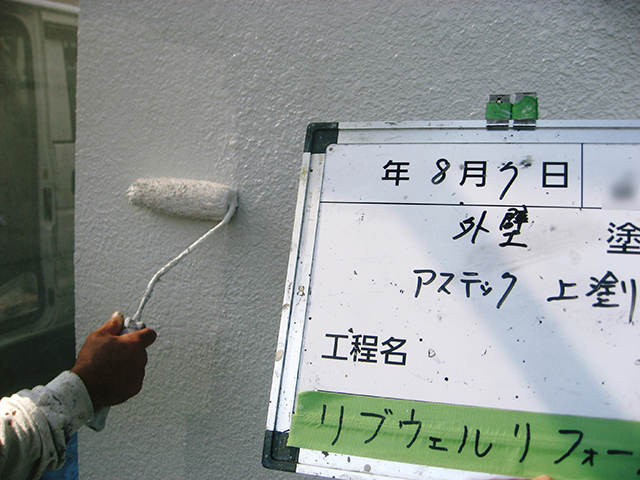 年 8月 7日
外壁 塗
アステック 上塗り
工程名
リブウェルリフォー